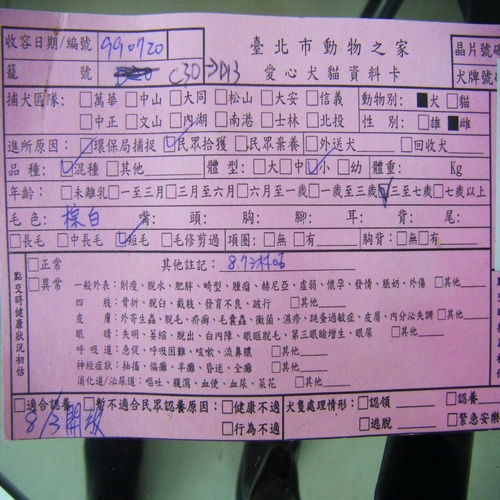 收容日期/編號 990720 臺北市動物之家 晶片號
籠 號 C30→D13 愛心犬貓資料卡 犬牌號
捕犬區隊：□萬華□中山□大同□松山□大安□信義 動物別：■犬□貓
□中正□文山□內湖□南港□士林□北投 性 別：□雄■雌
進所原因：□環保局捕捉☑民眾拾獲□民眾棄養□外送犬 □回收犬
品 種：☑混種□其他 體 型：□大□中☑小□幼 體重： Kg
年齡：□未離乳□一至三月□三月至六月□六月至一歲□一歲至三歲☑三至七歲□七歲以上
毛 色：棕白 嘴： 頭： 胸： 腳： 耳： 背： 尾：
□長毛□中長毛☑短毛□毛修剪過 項圈：□無□有 胸背：□無□有
點交時健康狀況初估
□正常 其他註記：
□異常 一般外表：削瘦、脫水、肥胖、畸型、腫瘤、赫尼亞、虛弱、懷孕、發情、脹奶、外傷 □其他
四 肢：骨折、脫臼、截肢、發育不良、跛行 □其他
皮 膚：外寄生蟲、脫毛、疥癬、毛囊蟲、黴菌、濕疹、跳蚤過敏症、皮屑、內分泌失調□其他
眼 睛：失明、萎縮、脫出、白內障、眼眶脫毛、第三眼瞼增生、眼屎 □其他
呼 吸 道：急促、呼吸困難、咳嗽、流鼻膿 □其他
神經症狀：抽搐、偏癱、半癱、昏迷、全癱 □其他
消化道/泌尿道：嘔吐、腹瀉、血便、血尿、菜花 □其他
□適合認養□暫不適合民眾認養原因：□健康不適 犬隻處理情形：□認領 □認養
8/3開放 □行為不適 □逃脫 □緊急安樂